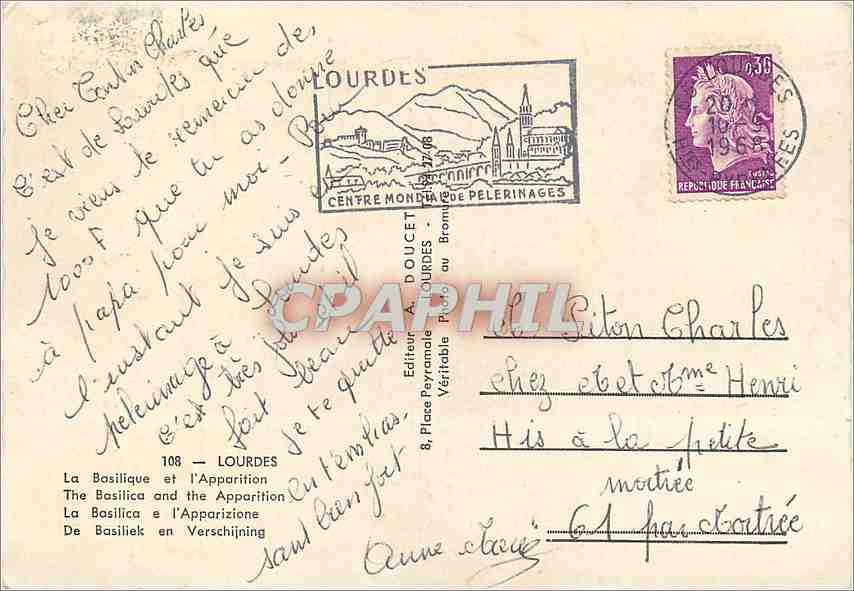 Cher Tonton Charles
C'est de Lourdes que
je viens te remercier des
1000 F que tu as donné
à papa pour moi - Pour
l'instant je suis en
pelerinage à Lourdes
c'est très joli et il
fait beau
je te quitte
en t'embras-
sant bien fort
Anne Marie
108 — LOURDES
La Basilique et l'Apparition
The Basilica and the Apparition
La Basilica e l'Apparizione
De Basiliek en Verschijning
LOURDES
CENTRE MONDIAL DE PELERINAGES
Editeur A. DOUCET
8, Place Peyramale LOURDES - Tél. 27-08
Véritable Photo au Bromure
0,30
REPUBLIQUE FRANÇAISE
LOURDES
20 H
10
1968
PYRENEES
CPAPHIL
M Piton Charles
chez M et Mme Henri
His à la petite
mortrée
61 par Mortrée